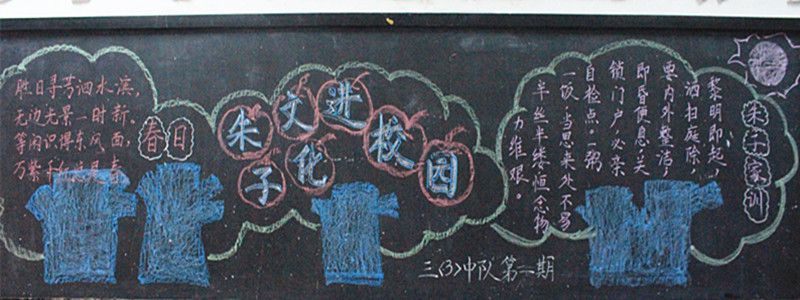 春日
胜日寻芳泗水滨,
无边光景一时新。
等闲识得东风面,
万紫千红总是春
朱子文化进校园
朱子家训
黎明即起,
洒扫庭除,
要内外整洁,
即昏便息,关
锁门户,必亲
自检点。一粥
一饭,当思来处不易
半丝半缕恒念物
力维艰。
三(3)中队第一期